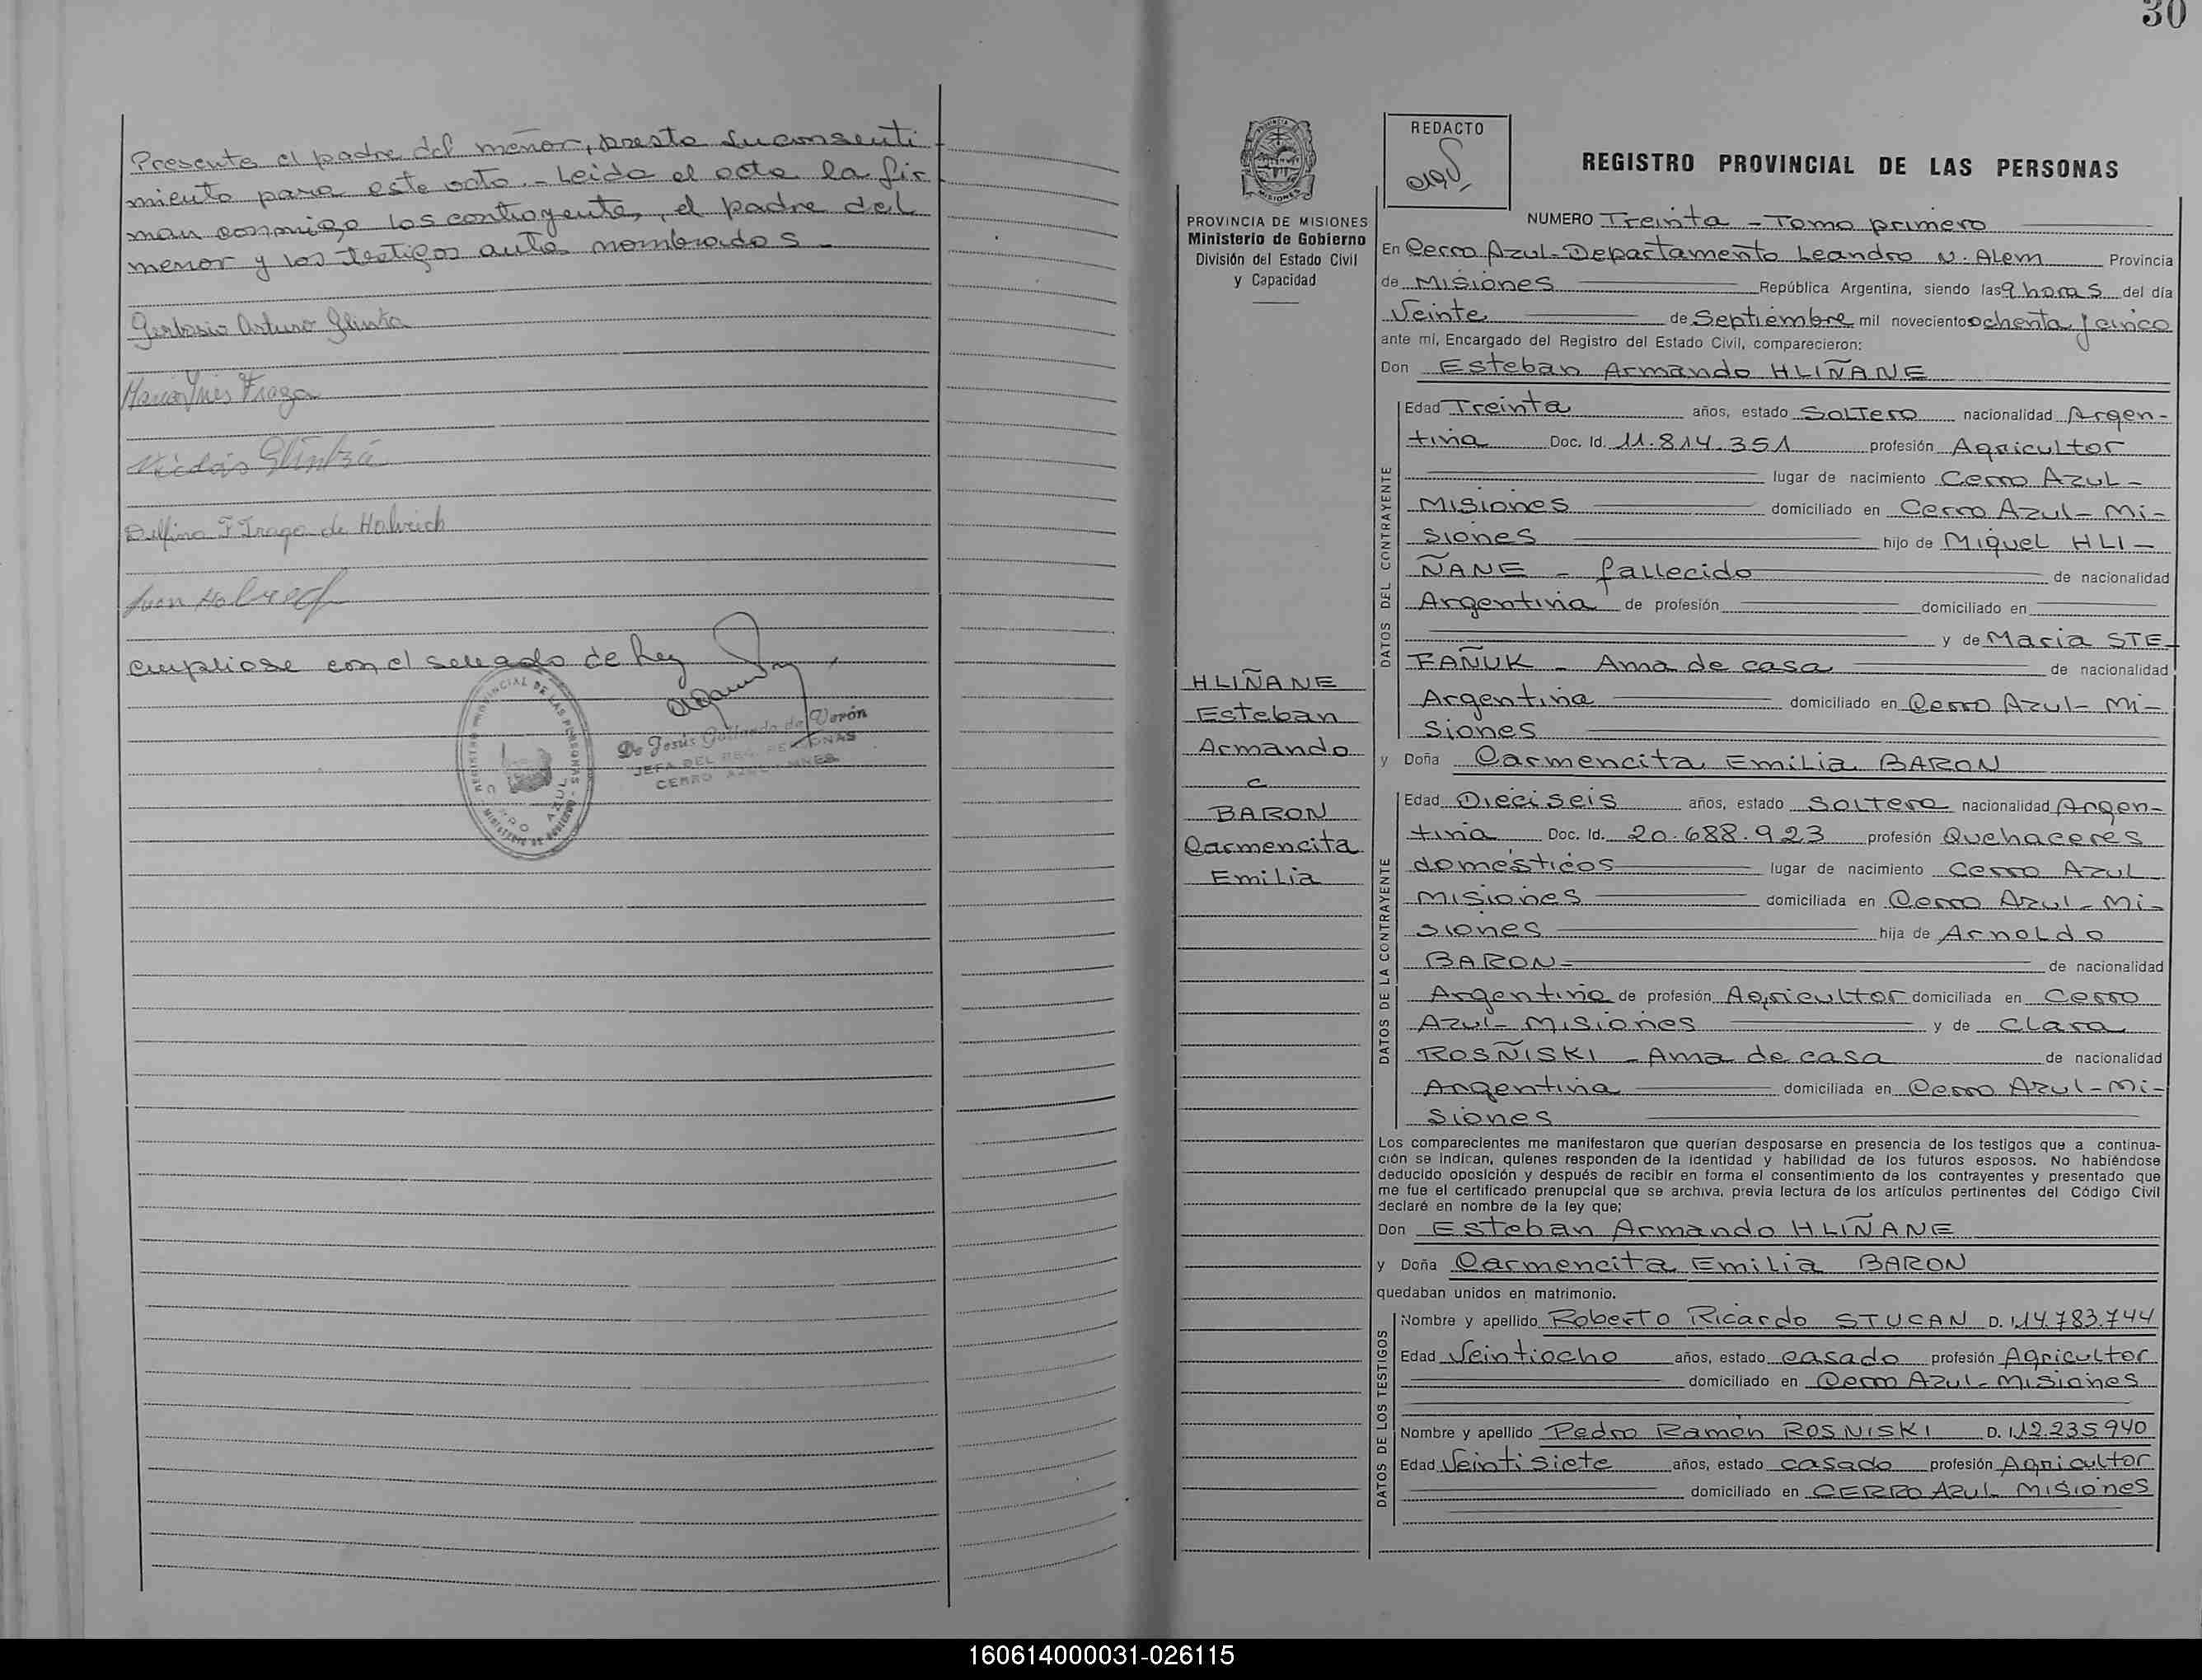 Presente el padre del menor, presta su consenti
miento para este acto.- Leida el acta la fir
man conmigo los contrayentes, el padre del
menor y los testigos ante nombrados -
Arturo Glinka
Maria Ynés Fraga
Nicolás
Delfina F Fraga de Holoveich
Juan
cumpliose con el sellado de ley
De Jesús de Verón
JEFA DEL REG. PERSONAS
CERRO AZUL - MNES.
30
REDACTO
REGISTRO PROVINCIAL DE LAS PERSONAS
PROVINCIA DE MISIONES
Ministerio de Gobierno
División del Estado Civil
y Capacidad
NUMERO Treinta - Tomo primero
En Cerro Azul-Departamento Leandro N. Alem Provincia
de Misiones República Argentina, siendo las 9 horas del día
Veinte de Septiembre mil novecientos ochenta y cinco
ante mí, Encargado del Registro del Estado Civil, comparecieron:
Don Esteban Armando HLIÑANE
DATOS DEL CONTRAYENTE
Edad Treinta años, estado Soltero nacionalidad Argen-
tina Doc. Id. 11.814.351 profesión Agricultor
lugar de nacimiento Cerro Azul-
Misiones domiciliado en Cerro Azul- Mi-
siones hijo de Miguel HLI-
ÑANE - fallecido de nacionalidad
Argentina de profesión domiciliado en
y de Maria STE-
FAÑUK - Ama de casa de nacionalidad
Argentina domiciliado en Cerro Azul- Mi-
siones
HLIÑANE
Esteban
Armando
c
BARON
Carmencita
Emilia
y Doña Carmencita Emilia BARON
DATOS DE LA CONTRAYENTE
Edad Dieciseis años, estado Soltera nacionalidad Argen-
tina Doc. Id. 20.688.923 profesión Quehaceres
domésticos lugar de nacimiento Cerro Azul
Misiones domiciliada en Cerro Azul- Mi-
siones hija de Arnoldo
BARON- de nacionalidad
Argentina de profesión Agricultor domiciliada en Cerro
Azul- Misiones y de Clara
ROSÑISKI - Ama de casa de nacionalidad
Argentina domiciliada en Cerro Azul-Mi-
siones
Los comparecientes me manifestaron que querían desposarse en presencia de los testigos que a continua-
ción se indican, quienes responden de la identidad y habilidad de los futuros esposos. No habiéndose
deducido oposición y después de recibir en forma el consentimiento de los contrayentes y presentado que
me fue el certificado prenupcial que se archiva, previa lectura de los artículos pertinentes del Código Civil
declaré en nombre de la ley que;
Don Esteban Armando HLIÑANE
y Doña Carmencita Emilia BARON
quedaban unidos en matrimonio.
DATOS DE LOS TESTIGOS
Nombre y apellido Roberto Ricardo STUCAN D. I. 14.783.744
Edad Veintiocho años, estado casado profesión Agricultor
domiciliado en Cerro Azul- Misiones
Nombre y apellido Pedro Ramón ROSNISKI D. I. 12.235.940
Edad Veintisiete años, estado casado profesión Agricultor
domiciliado en CERRO AZUL Misiones
160614000031-026115